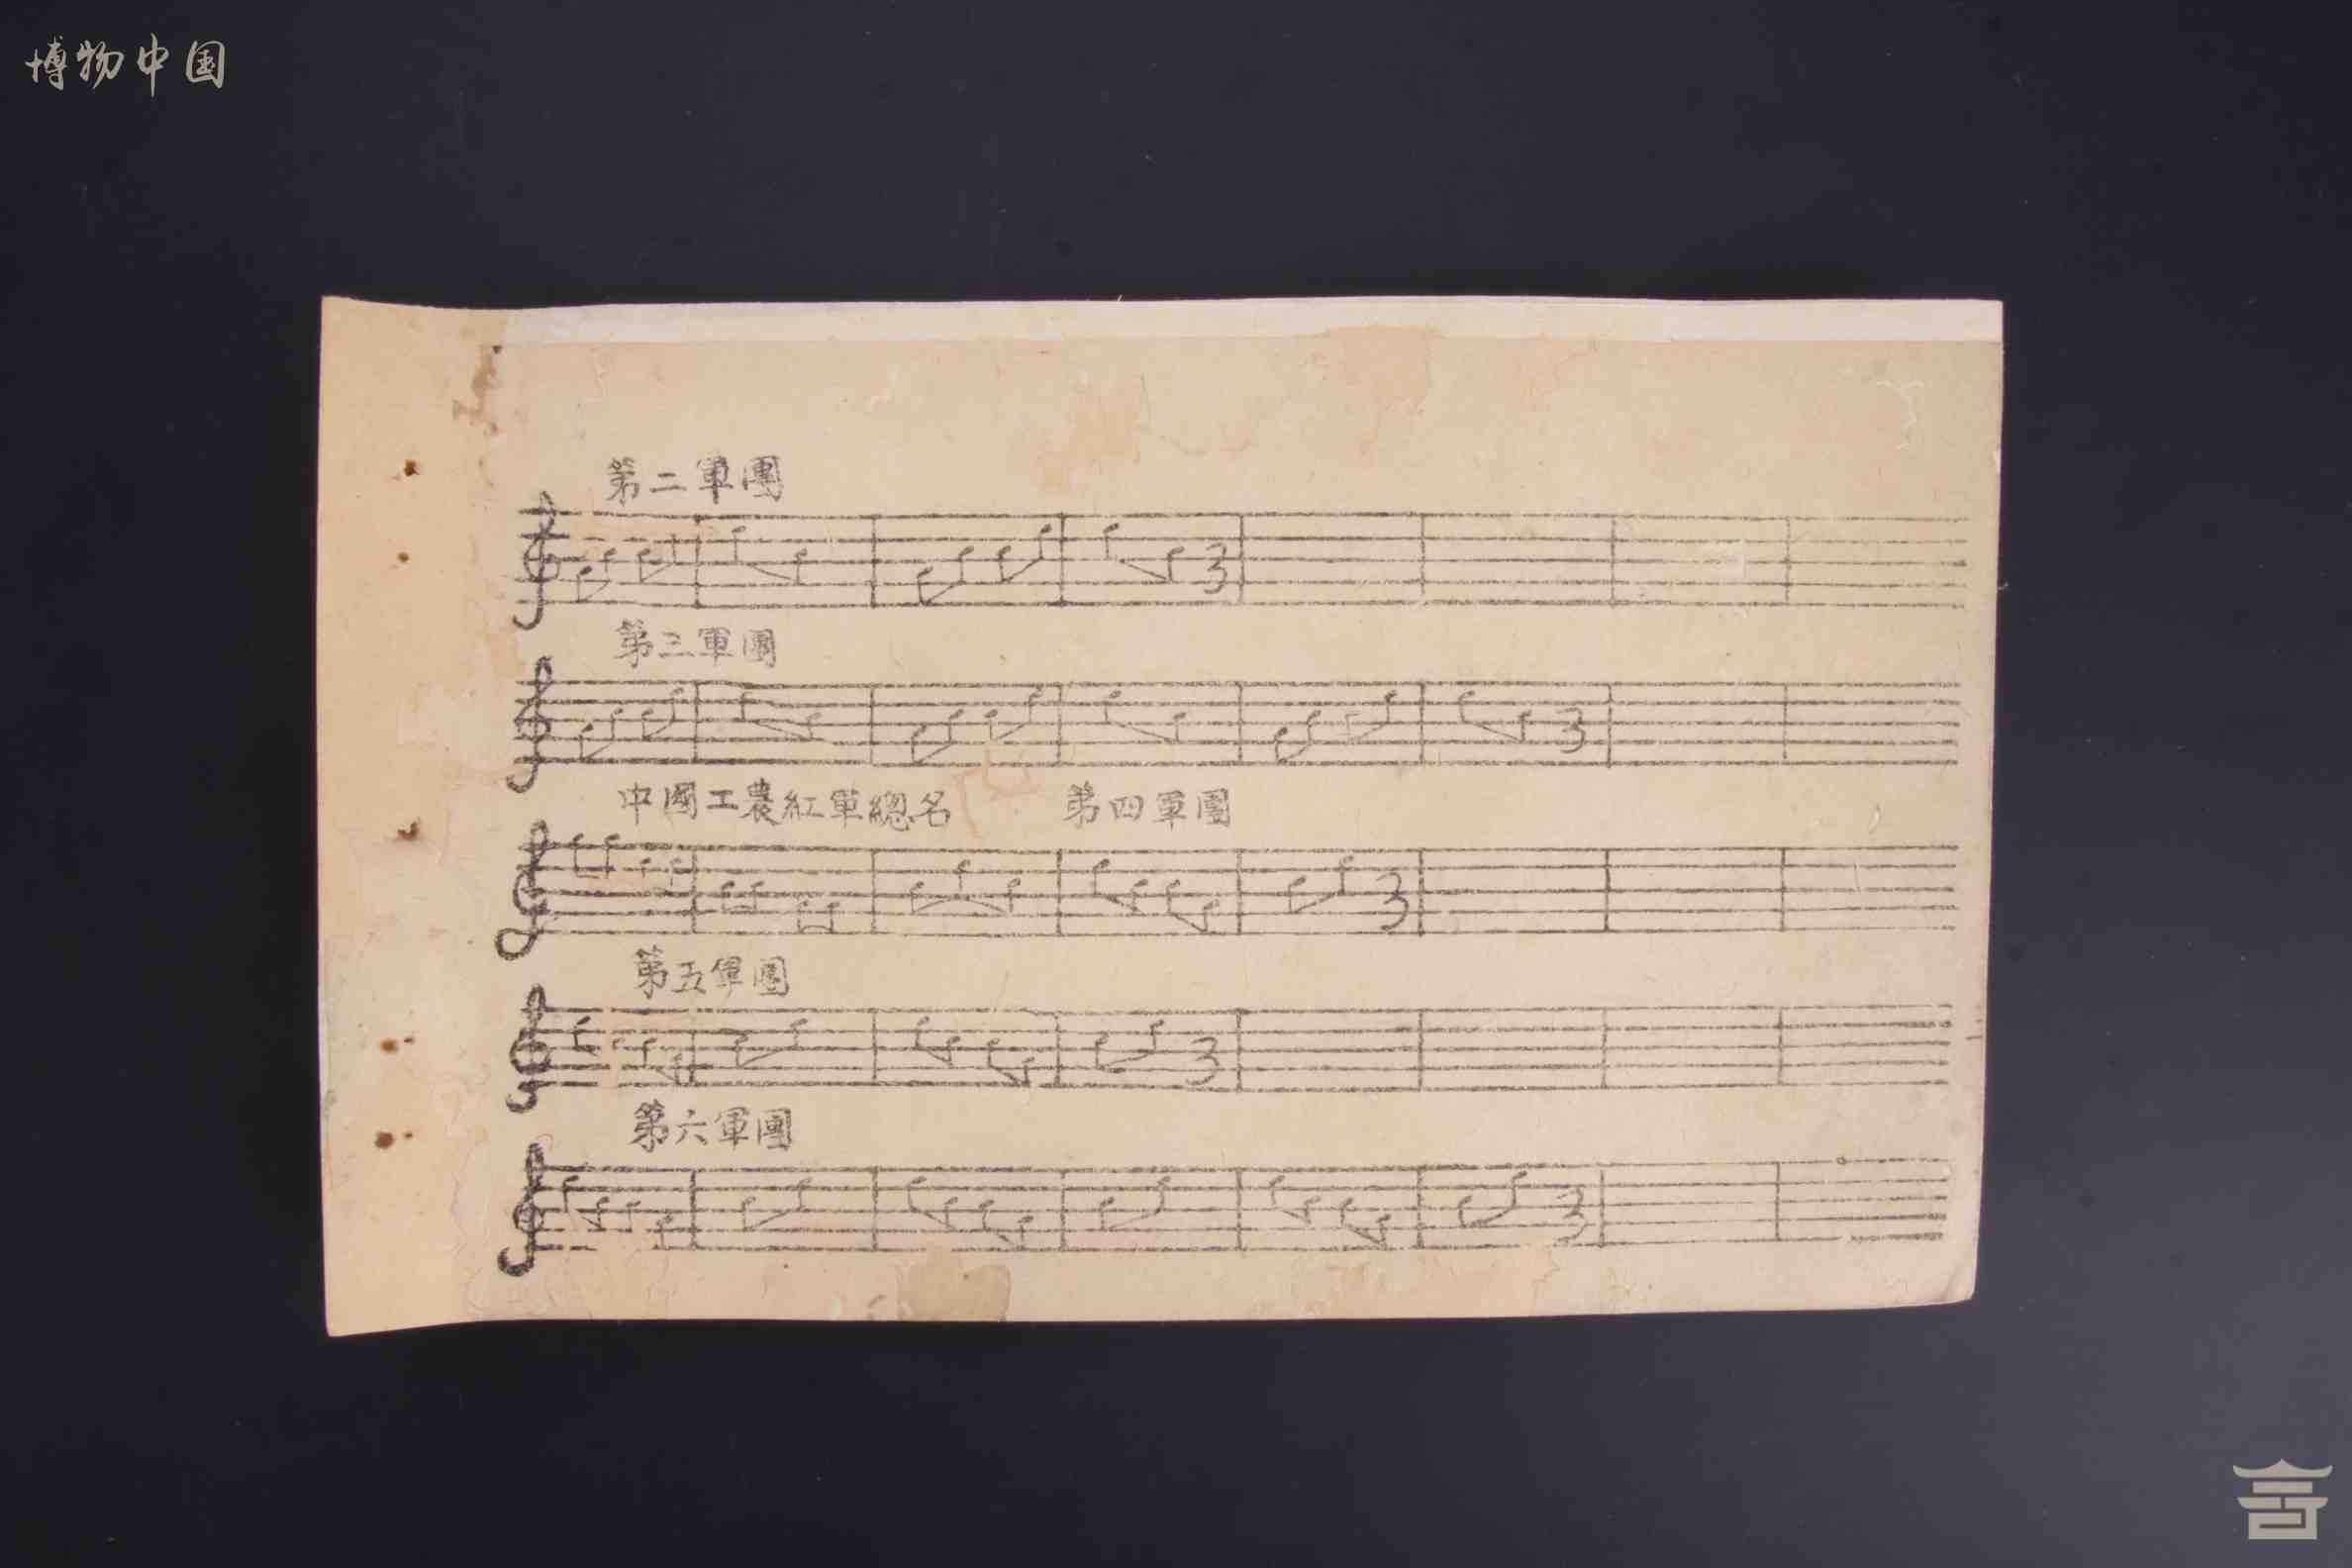 博物中国
第二軍團
第三軍團
中國工農紅軍總名 第四軍團
第五軍團
第六軍團